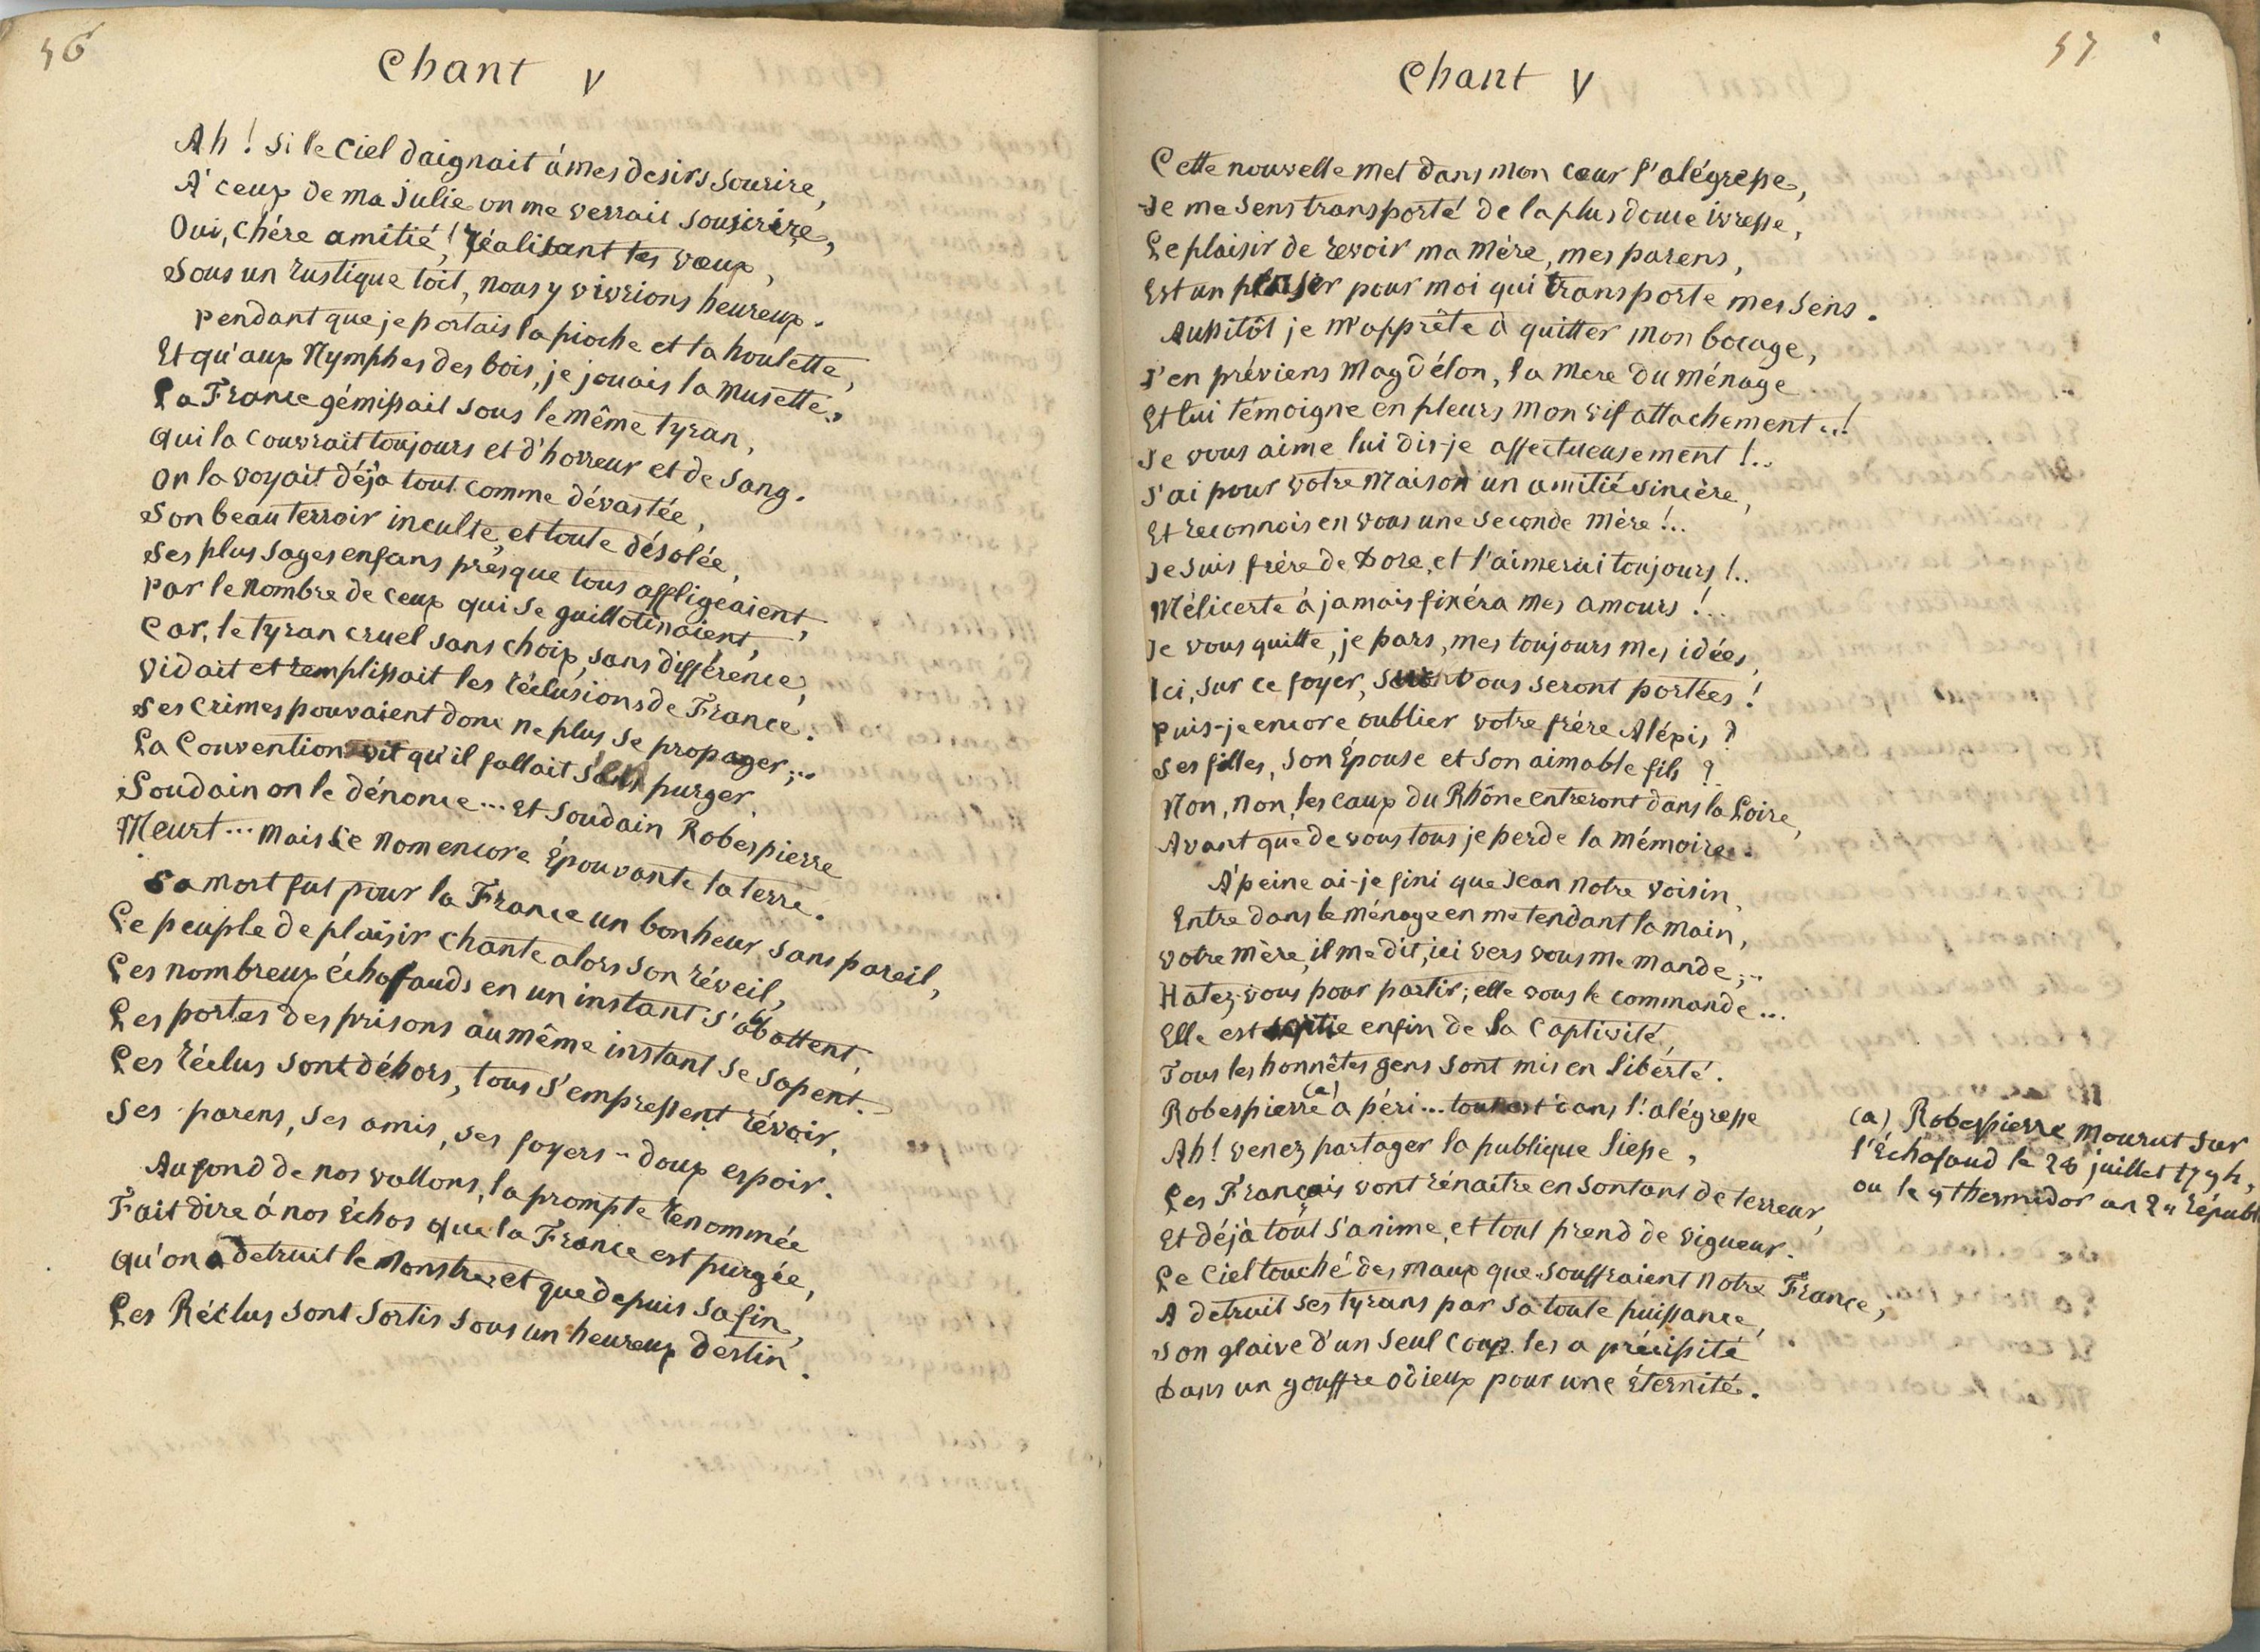 56
Chant V
Ah ! si le Ciel daignait à mes desirs sourire,
A' ceux de ma Julie on me verrait souscrire,
Oui, chère amitié ! Réalisant tes vœux,
Sous un rustique toit, nous y vivrions heureux.
Pendant que je portais la pioche et la houlette,
Et qu'aux Nymphes des bois, je jouais la musette,
La France gémissait sous le même tyran,
Qui la couvrait toujours et d'horreur et de sang.
On la voyait déjà tout comme dévastée,
Son beau terroir inculte, et toute désolée,
Ses plus sages enfans presque tous affligeaient,
Par le nombre de ceux qui se guillotinaient,
Car, le tyran cruel sans choix, sans différence,
Vidait et remplissait les réclusions de France.
Ses crimes pouvaient donc ne plus se propager;...
La Convention vit qu'il fallait s'en purger,
Soudain on le dénonce... et soudain Robespierre
Meurt... mais le nom encore épouvante la terre.
Sa mort fut pour la France un bonheur sans pareil,
Le peuple de plaisir chante alors son réveil,
Les nombreux échafauds en un instant s'abattent,
Les portes des prisons au même instant se sapent.
Les réclus sont déhors, tous s'empressent révoir,
Ses parens, ses amis, ses foyers .. doux espoir.
Au fond de nos vallons, la prompte renommée
Fait dire à nos échos que la France est purgée,
Qu'on a detruit le Monstre, et que depuis sa fin,
Les Réclus sont sortis sous un heureux destin.
57
Chant V
Cette nouvelle met dans mon cœur l'alégresse,
Je me sens transporté de la plus douce ivresse,
Le plaisir de revoir ma mère, mes parens,
Est un plaisir pour moi qui transporte mes sens.
Aussitôt je m'apprête à quitter mon bocage,
J'en préviens Magdélon, la mere du ménage
Et lui témoigne en pleurs mon vif attachement...!
Je vous aime lui dis-je affectueusement !..
J'ai pour votre maison un amitié sincère,
Et reconnois en vous une seconde mère !..
Je suis frère de Dore, et l'aimerai toujours !..
Mélicerte à jamais fixéra mes amours !..
Je vous quitte, je pars, mes toujours mes idées,
Ici, sur ce foyer, sur vous seront portées !
Puis-je encore oublier votre frère Aléxis ?
Ses filles, son Épouse et son aimable fils ?
Non, non, les eaux du Rhône entreront dans la Loire,
Avant que de vous tous je perde la mémoire.
A'peine ai-je fini que Jean notre voisin,
Entre dans le ménage en me tendant la main,
Votre mère, il me dit, ici vers vous me mande;...
Hatez-vous pour partir; elle vous le commande...
Elle est sortie enfin de sa captivité,
Tous les honnêtes gens sont mis en liberté.
Robespierre (a) a péri... tout est dans l'alégresse
Ah! venez partager la publique liesse,
Les Français vont rénaître en sortant de terreur,
Et déjà tout s'anime, et tout prend de vigueur.
Le Ciel touché des maux que souffraient notre France,
A detruit ses tyrans par sa toute puissance,
Son glaive d'un seul coup les a précipité
Dans un gouffre odieux pour une éternité.
(a) Robespierre mourut sur
l'échafaud le 28 juillet 1794,
ou le 9 thermidor an 2e républ